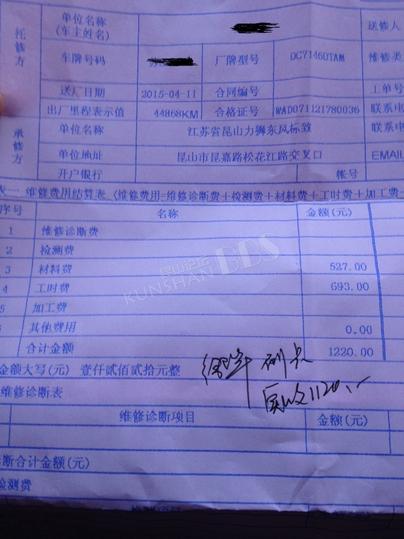 托修方
单位名称 送修人
(车主姓名)
车牌号码 厂牌型号 DC7146DTAM 维修类
送厂日期 2015-04-11 合同编号 工单号
出厂里程表示值 44868KM 合格证号 WAD071121780036 联系电
承修方
单位名称 江苏省昆山力狮东风标致 联系电
单位地址 昆山市昆嘉路松花江路交叉口 EMAIL
开户银行 帐号
表一 维修费用结算表 (维修费用=维修诊断费+检测费+材料费+工时费+加工费
序号 名称 金额(元)
1 维修诊断费
2 检测费
3 材料费 527.00
4 工时费 693.00
5 加工费
6 其他费用 0.00
合计金额 1220.00
金额大写(元) 壹仟贰佰贰拾元整
实收1120.
维修诊断表
维修诊断项目 金额(元)
断合计金额(元)
检测费
KUNSHAN BBS